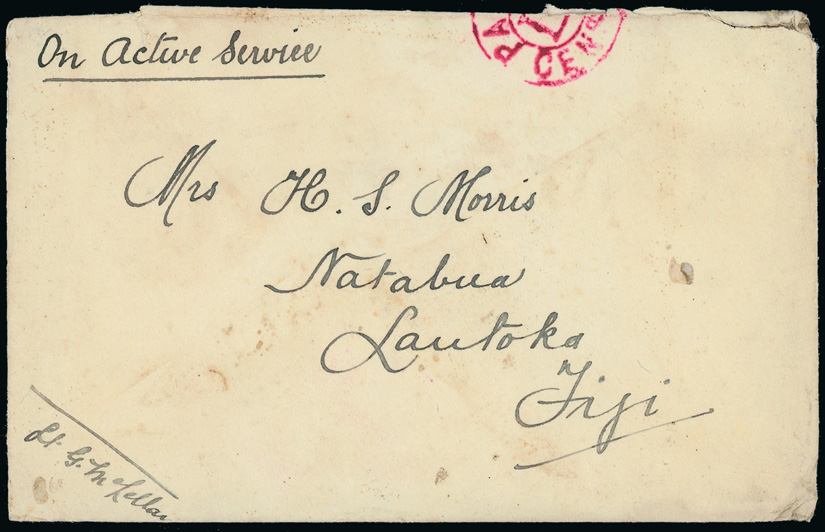 On Active Service
PA
CENS
Mrs H. S. Morris
Natabua
Lautoka
Fiji
Lt. G. McKellar